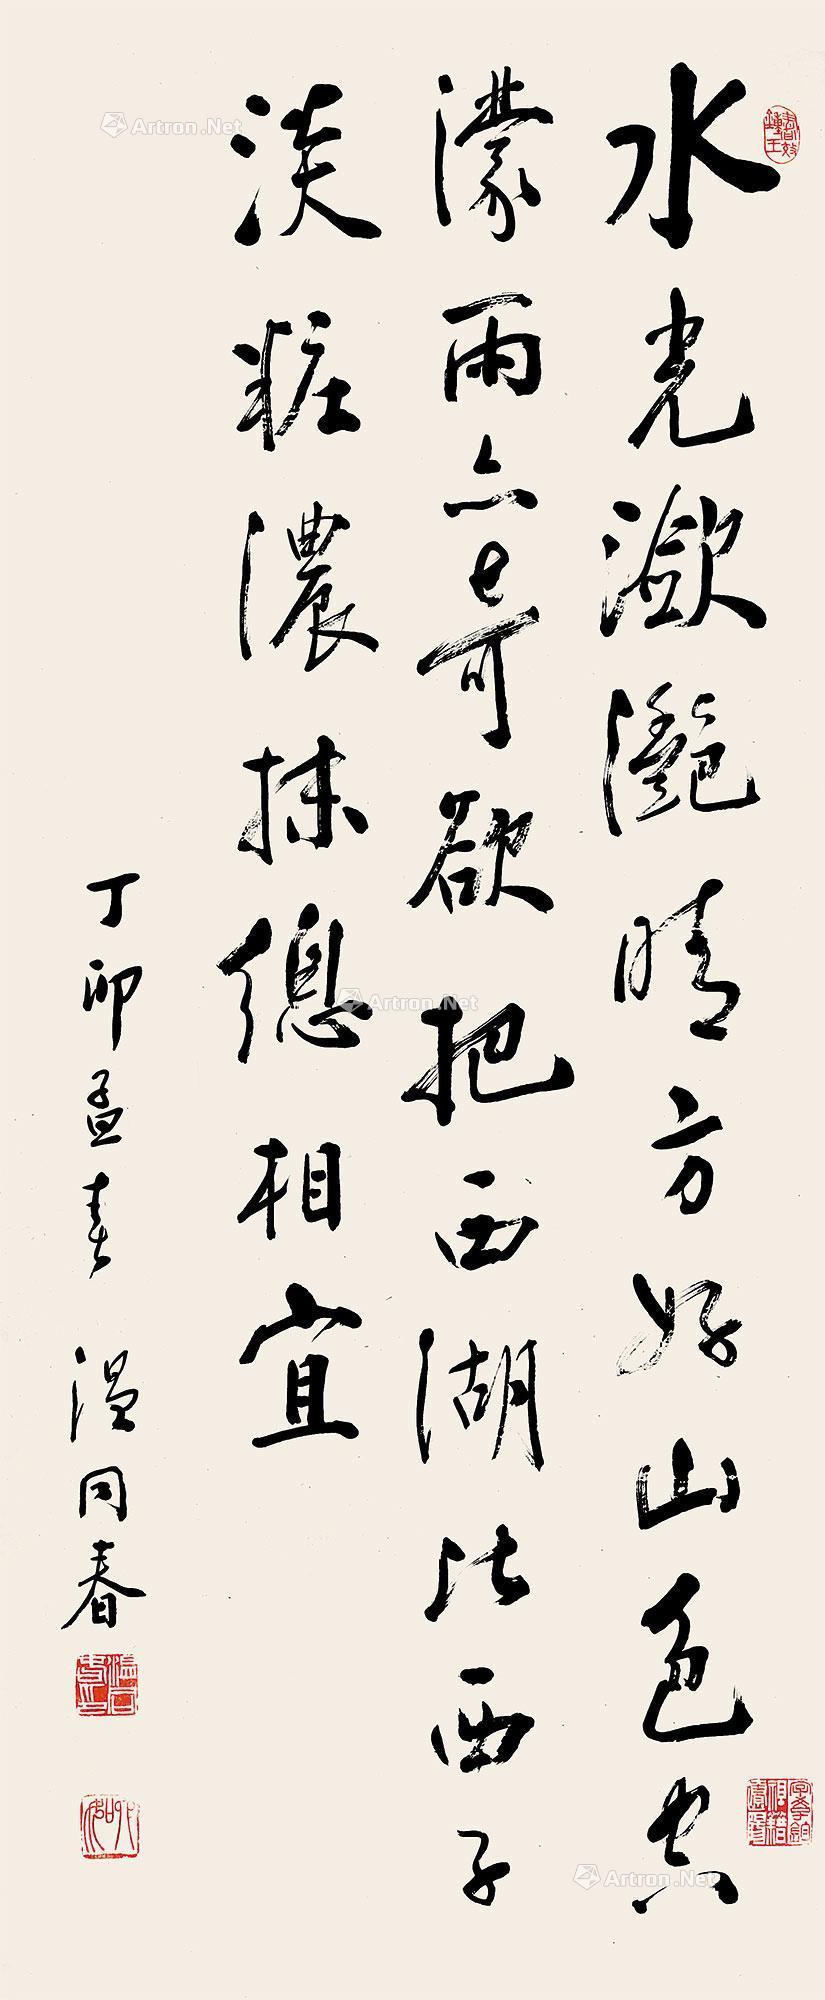 水光潋滟晴方好山色空
濛雨亦奇欲把西湖比西子
淡粧濃抹總相宜
丁卯孟春 温同春
Artron.Net
Artron.Net
Artron.Net